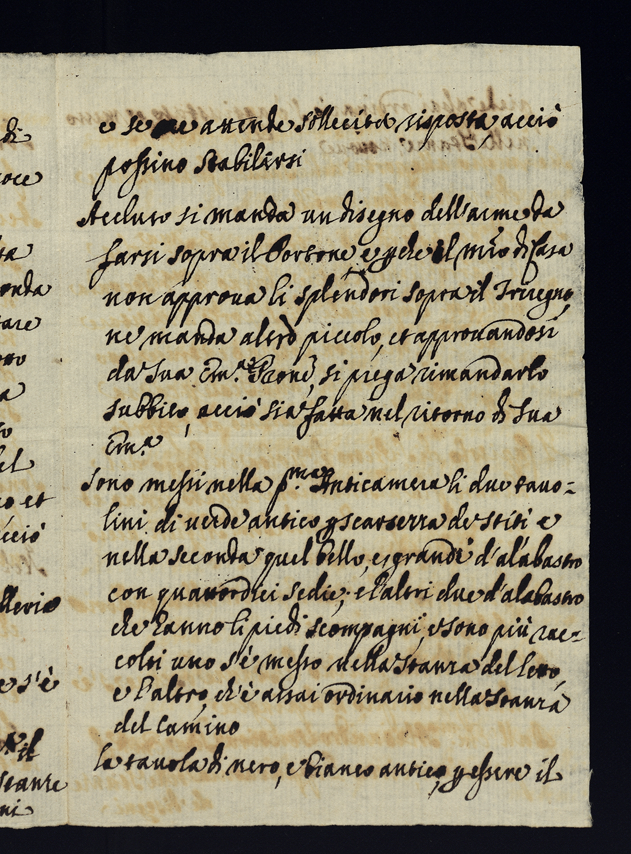 e se ne attende sollecita risposta acciò
possino stabilirsi
Accluso si manda un disegno dell'arme da
farsi sopra il Portone, e p che il mro di Casa
non approva li splendori sopra il Triregno,
ne manda altro piccolo, et approvandosi
da Sua Em.a Prone, si prega rimandarlo
subbito, acciò sia fatta nel ritorno di Sua
Em.a
Sono messi nella p.ma Anticamera li due tavo=
lini di verde antico p scarsezza de siti e
nella seconda quel bello, e grande d'alabastro
con quattordici sedie; e l'altri due d'alabastro
che hanno li piedi scompagni, e sono più rac=
colti uno s'è messo nella stanza del letto,
e l'altro ch'è assai ordinario nella stanza
del Camino
la tavola di nero, e bianco antico, p essere il
di
oce
ta
onda
tare
a
el
o et
cciò
lleria
e s'è
il
stanze
ni